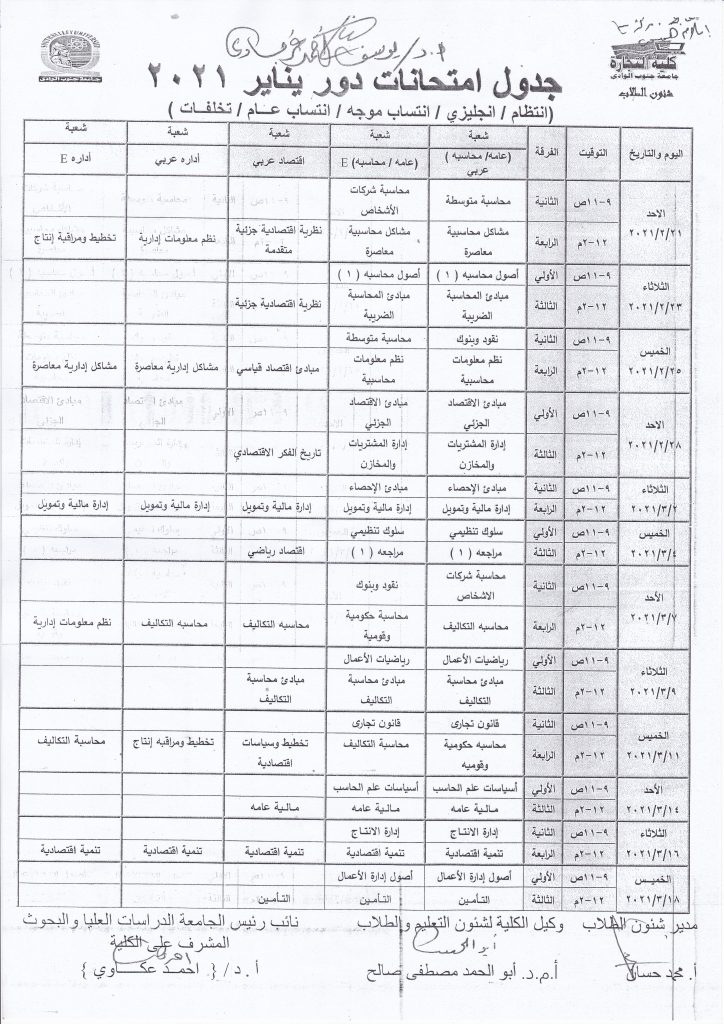 كلية التجارة
جامعة جنوب الوادى
شئون الطلاب
SOUTH VALLEY UNIVERSITY
أ.د/ يوسف
جدول امتحانات دور يناير ٢٠٢١
(انتظام / انجليزي / انتساب موجه / انتساب عـام / تخلفـات )
اليوم والتاريخ التوقيت الفرقة شعبة (عامه/ محاسبه ) عربي شعبة (عامه / محاسبه) E شعبة اقتصاد عربي شعبة أداره عربي شعبة أداره E
الاحد ٢٠٢١/٢/٢١
٩-١١ص الثانية محاسبة متوسطة محاسبة شركات الأشخاص
١٢-٢م الرابعة مشاكل محاسبية معاصرة مشاكل محاسبية معاصرة نظرية اقتصادية جزئية متقدمة نظم معلومات إدارية تخطيط ومراقبة إنتاج
الثلاثاء ٢٠٢١/٢/٢٣
٩-١١ص الأولي أصول محاسبه ( ١ ) أصول محاسبه ( ١ )
١٢-٢م الثالثة مبادئ المحاسبة الضريبة مبادئ المحاسبة الضريبة نظرية اقتصادية جزئية
الخميس ٢٠٢١/٢/٢٥
٩-١١ص الثانية نقود وبنوك محاسبة متوسطة
١٢-٢م الرابعة نظم معلومات محاسبية نظم معلومات محاسبية مبادئ اقتصاد قياسي مشاكل إدارية معاصرة مشاكل إدارية معاصرة
الاحد ٢٠٢١/٢/٢٨
٩-١١ص الأولي مبادئ الاقتصاد الجزئي مبادئ الاقتصاد الجزئي
١٢-٢م الثالثة إدارة المشتريات والمخازن إدارة المشتريات والمخازن تاريخ الفكر الاقتصادي
الثلاثاء ٢٠٢١/٣/٢
٩-١١ص الثانية مبادئ الإحصاء مبادئ الإحصاء
١٢-٢م الرابعة إدارة مالية وتمويل إدارة مالية وتمويل إدارة مالية وتمويل إدارة مالية وتمويل إدارة مالية وتمويل
الخميس ٢٠٢١/٣/٤
٩-١١ص الأولي سلوك تنظيمي سلوك تنظيمي
١٢-٢م الثالثة مراجعه ( ١ ) مراجعه ( ١ ) اقتصاد رياضي
الأحد ٢٠٢١/٣/٧
٩-١١ص الثانية محاسبة شركات الاشخاص نقود وبنوك
١٢-٢م الرابعة محاسبه التكاليف محاسبة حكومية وقومية محاسبه التكاليف محاسبه التكاليف نظم معلومات إدارية
الثلاثاء ٢٠٢١/٣/٩
٩-١١ص الأولي رياضيات الأعمال رياضيات الأعمال
١٢-٢م الثالثة مبادئ محاسبة التكاليف مبادئ محاسبة التكاليف مبادئ محاسبة التكاليف
الخميس ٢٠٢١/٣/١١
٩-١١ص الثانية قانون تجارى قانون تجارى
١٢-٢م الرابعة محاسبه حكومية وقوميه محاسبة التكاليف تخطيط وسياسات اقتصادية تخطيط ومراقبه إنتاج محاسبة التكاليف
الأحد ٢٠٢١/٣/١٤
٩-١١ص الأولي أسياسات علم الحاسب أسياسات علم الحاسب
١٢-٢م الثالثة مالـية عامه مالـية عامه مالـية عامه
الثلاثاء ٢٠٢١/٣/١٦
٩-١١ص الثانية إدارة الانتاج إدارة الانتاج
١٢-٢م الرابعة تنمية اقتصادية تنمية اقتصادية تنمية اقتصادية تنمية اقتصادية تنمية اقتصادية
الخميس ٢٠٢١/٣/١٨
٩-١١ص الأولي أصول إدارة الأعمال أصول إدارة الأعمال
١٢-٢م الثالثة التـأمين التـأمين التـأمين
مدير شئون الطلاب وكيل الكلية لشئون التعليم والطلاب نائب رئيس الجامعة الدراسات العليا والبحوث
المشرف على الكلية
أ. محمد حسان أ.م.د. أبو الحمد مصطفى صالح أ.د/ { أحمد عكــاوي }